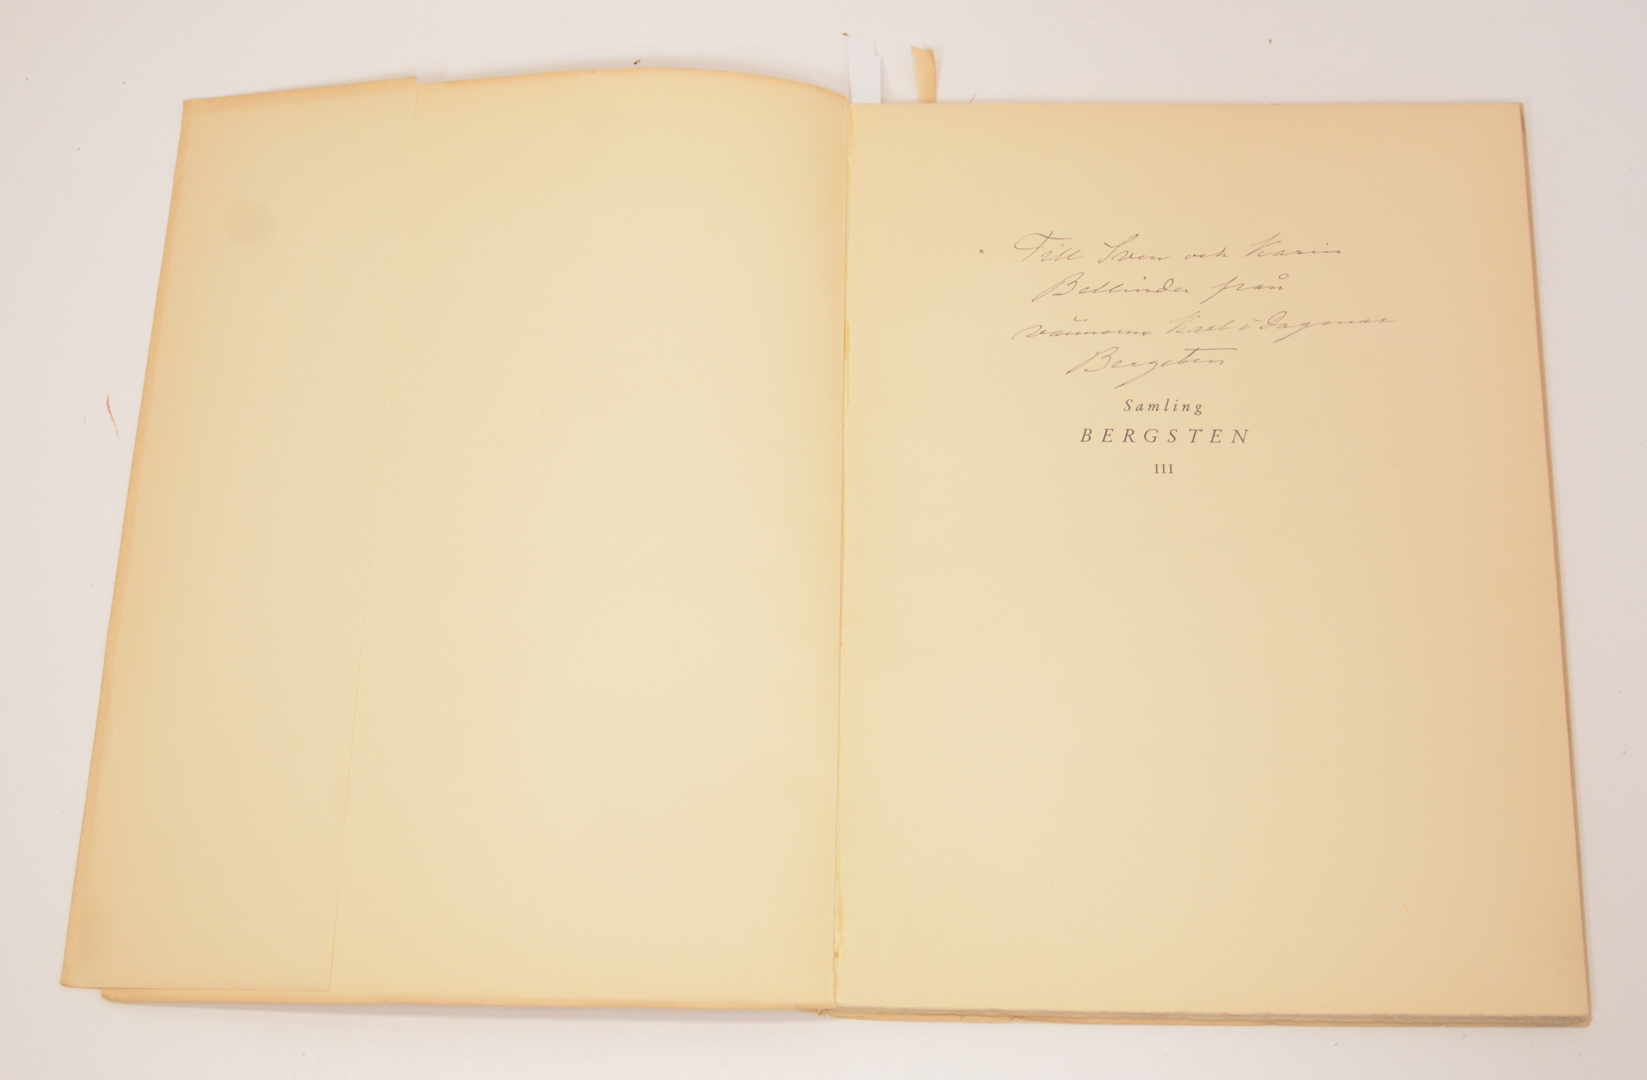 Till Sven och Karin
Bellinder från
vännerna Karl o Dagmar
Bergsten
Samling
BERGSTEN
III